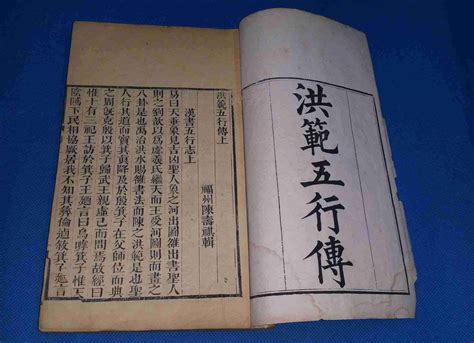 洪範五行傳
洪範五行傳上
福州陳壽祺輯
漢書五行志上
易曰天垂象見吉凶聖人象之河出圖雒出書聖人
則之劉歆以爲虙羲氏繼天而王受河圖則而畫之
八卦是也禹治洪水賜雒書法而陳之洪範是也聖
人行其道而寶其眞降及于殷箕子在父師位而典
之周旣克殷以箕子歸武王親虛己而問焉故經曰
惟十有三祀王訪于箕子王迺言曰烏嘑箕子惟天
陰隲下民相協厥居我不知其彝倫逌敘箕子迺言